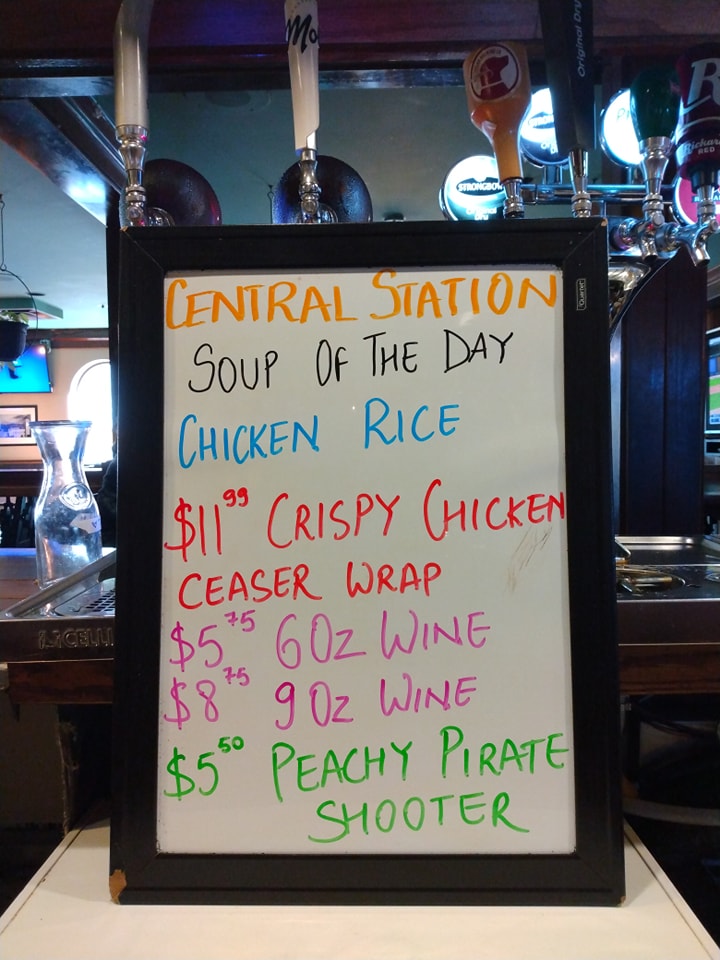 Mo
Original Dry
STRONGBOW
R
Rickard's
RED
Quartet
CENTRAL STATION
SOUP OF THE DAY
CHICKEN RICE
$11.99 CRISPY CHICKEN
CEASER WRAP
$5.75 6 OZ WINE
$8.75 9 OZ WINE
$5.50 PEACHY PIRATE
SHOOTER